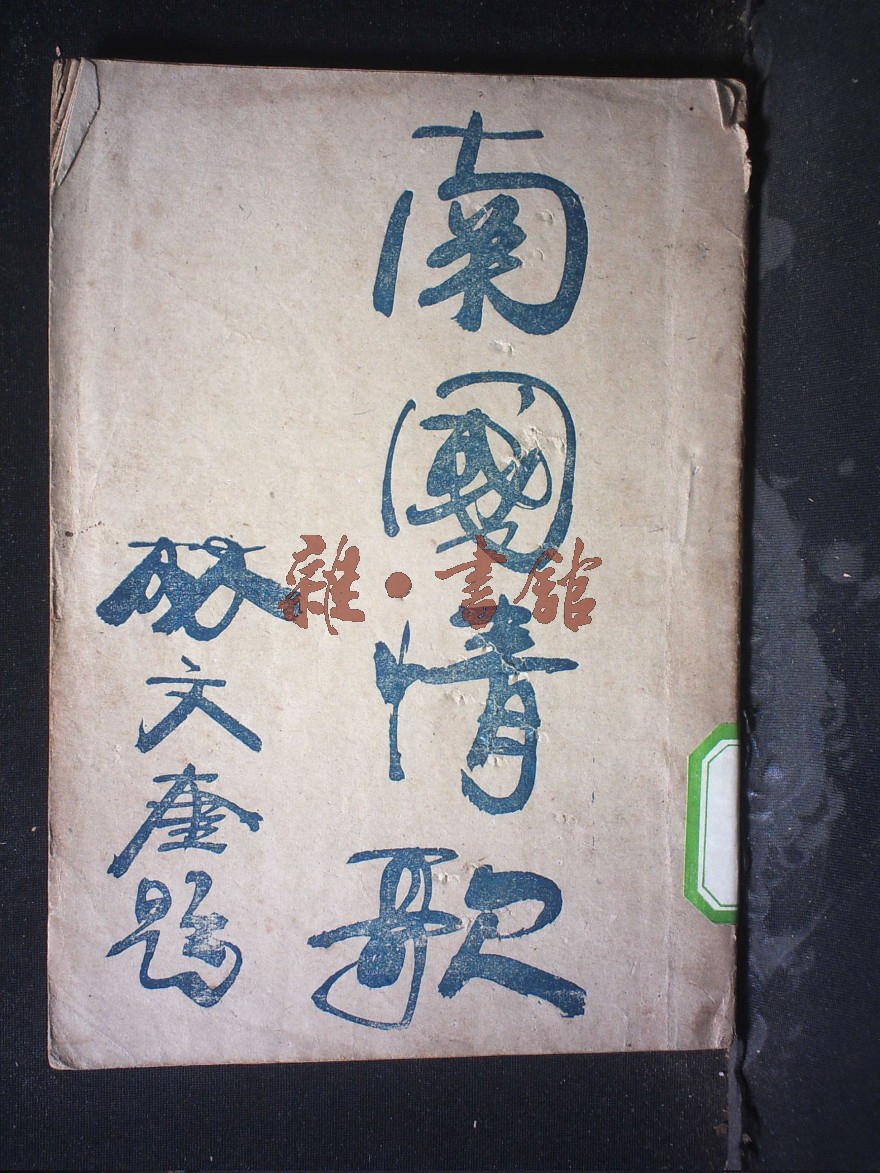 南國情歌
文奎題
雜·書館